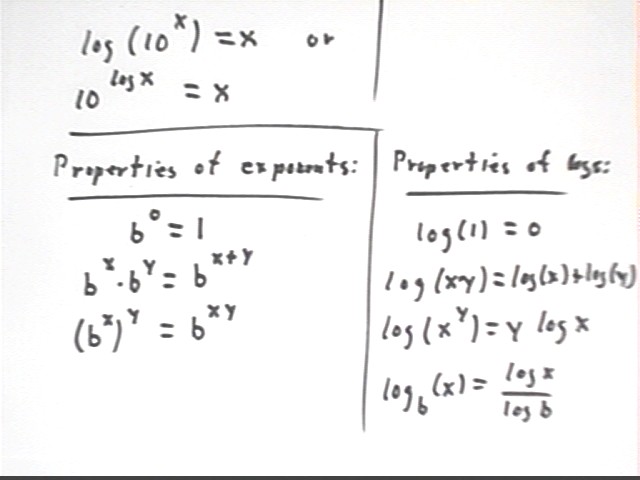 log(10^x) = x or
10^log x = x
Properties of exponents:
b^0 = 1
b^x · b^y = b^x+y
(b^x)^y = b^xy
Properties of logs:
log(1) = 0
log(xy) = log(x) + log(y)
log(x^y) = y log x
log_b(x) = log x / log b